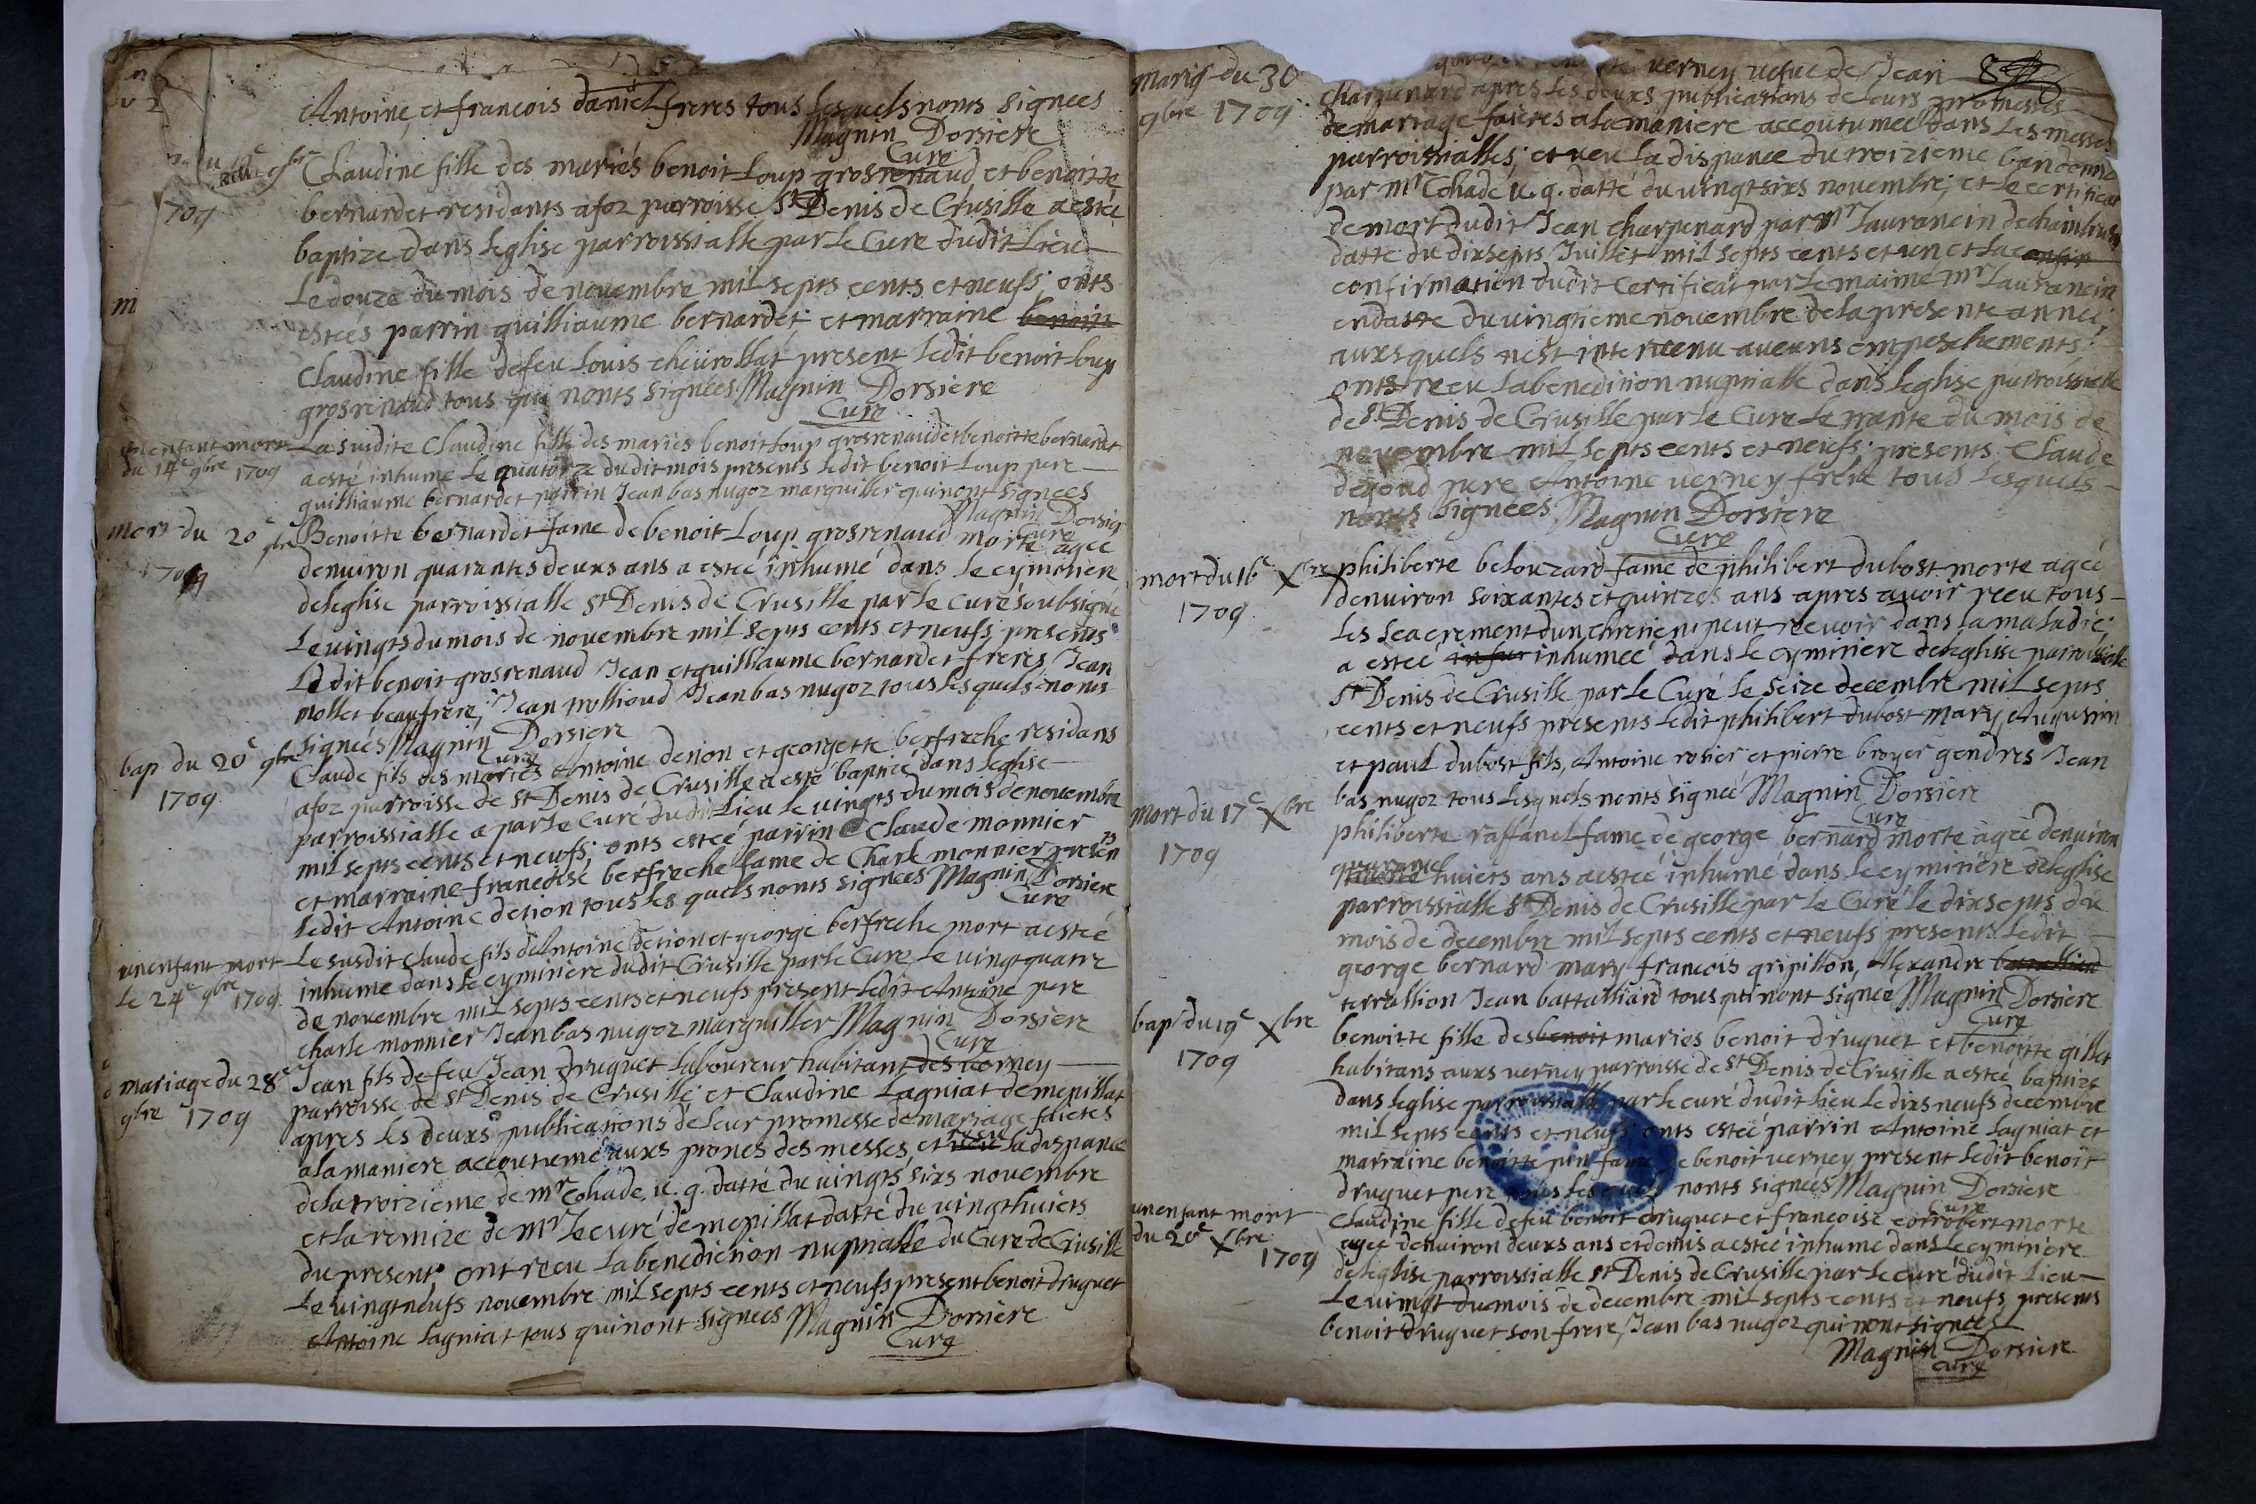 Antoine, et francois daniel freres tous lesquels nonts signees
Magnin Dorsiere
Curé
Claudine fille des mariés benoit Loup grosrenaud et benoitte
1709
bernardet residants afoz parroisse St Denis de Crusille a estée
baptize dans leglise parroissialle par le Curé dudit Lieu
Le douze du mois de novembre mil septs cents et neufs; onts
m
esteés parrin guilliaume bernardet et marraine benoit
Claudine fille de feu Louis present Ledit benoit loup
grosrenaud tous qui nonts signées Magnin Dorsiere
Curé
un enfant mort
du 14e 9bre 1709
La sudite Claudine fille des mariés benoit Loup grosrenaud et benoitte bernardet
a esté inhumé le quatorze dudit mois presents ledit benoit Loup pere
guilliaume bernardet parrin Jean bas nugoz marguillier qui nont signees
Magnin Dorsier
Curé
mort du 20e 9bre
1709
Benoitte bernardet fame de benoit Loup grosrenaud morte ageé
denviron quarantes deuxs ans a esteé inhumé dans le cymitiere
de leglise parroissialle St Denis de Crusille par le curé soubsigné
Le vingts du mois de novembre mil septs cents et neufs; presents
Ledit benoit grosrenaud Jean et guilliaume bernardet freres, Jean
mollet beaufrere; Jean Jean bas nugoz tous lesquels nonts
signeés Magnin Dorsiere
Curé
bap du 20e 9bre
1709
Claude fils des mariés Antoine detion et georgette berfreche residans
afoz parroisse de St Denis de Crusille a esté baptizé dans leglise
parroissialle a par le Curé dudit Lieu le vingts du mois de novembre
mil septs cents et neufs; onts esteé parrin Claude monnier
et marraine francoise berfreche fame de Charle monnier presents
ledit Antoine detion tous les quels nonts signees Magnin Dorsiere
Curé
un enfant mort
le 24e 9bre 1709
Le susdit Claude fils dAntoine detion et george berfreche mort a esteé
inhumé dans le cymitiere dudit Crusille par le Curé Le vingt quatre
de novembre mil septs cents et neufs present ledit Antoine pere
charle monnier Jean bas nugoz marguillier Magnin Dorsiere
Curé
mariage du 28e
9bre 1709
Jean fils de feu Jean druguet laboureur habitant des verney
parroisse de St Denis de Crusille; et Claudine Lagniat de mepillat
apres les deuxs publications de leur promesse de mariage faictes
a la maniere accoutumé auxs prones des messes, et veu la dispance
de la troizieme de mr Cohade, v. g. datté du vingts sixs novembre
et la remize de mr le curé de mepillat datté du vingthuiets
du present ont receu la benediction nuptialle du Curé de Crusille
Le vingtneufs novembre mil septs cents et neufs present benoit druguet
Antoine lagniat tous qui nont signees Magnin Dorsiere
Curé
mariag du 30
9bre 1709
verney vefue de Jean
charpenard apres les deuxs publications de leurs promesses
de mariage faictes a la maniere accoutumeé dans les messes
parroissialles; et veu la dispance du troizieme ban donné
par mr Cohade v. g. datté du vingtsixs novembre; et le certificat
de mort dudit Jean charpenard par mr laurancin
datté du dixsepts Juillet mil septs cents et un et la confir
confirmation dudit certificat par le maime mr Laurancin
en datte du vingtieme novembre de la presente anneé;
auxsquels nest intervenu aucuns empeschements;
onts receu la benedition nuptialle dans leglise parroissialle
de St Denis de Crusille par le Curé Le trante du mois de
novembre mil septs cents et neufs; presents Claude
degoud pere Antoine verney frere tous lesquels
nonts signees Magnin Dorsiere
Curé
mort du 16e Xbre
1709
philiberte belouzard fame de philibert dubost morte ageé
denviron soixantes et quinzes ans apres avoir receu tous
les seacrement dun chretien peut recevoir dans la maladie;
a esteé inhumeé dans le cymitiere de leglise parroissialle
St Denis de Crusille par le Curé le seize decembre mil septs
cents et neufs presents ledit philibert dubost mary, Augustin
et paul dubost fils, Antoine rosier et pierre broyer gendres Jean
bas nugoz tous lesquels nonts signeé Magnin Dorsiere
Curé
mort du 17e Xbre
1709
philiberte raffanel fame de george bernard morte ageé denviron
quarante huiets ans a esteé inhumé dans le cymitiere de leglise
parroissialle St Denis de Crusille par le Curé le dixsepts du
mois de decembre mil septs cents et neufs presents ledit
george bernard mary francois gripillon, Alexandre
terrallion Jean battalliard tous qui nont signeé Magnin Dorsiere
Curé
bap du 19e Xbre
1709
benoitte fille des benoit mariés benoit druguet et benoitte gillet
habitans auxs verney parroisse de St Denis de Crusille a esteé baptizé
dans leglise parroissialle par le curé dudit lieu le dixs neufs decembre
mil septs cents et neufs; onts esteé parrin Antoine lagniat et
marraine benoitte pin fame de benoit verney present ledit benoit
druguet pere tous lesquels nonts signées Magnin Dorsiere
Curé
un enfant mort
du 20e Xbre
1709
Claudine fille de feu benoit druguet et francoise corrobert morte
ageé denviron deuxs ans et demis a esteé inhumé dans le cymitiere
de leglise parroissialle St Denis de Crusille par le curé dudit Lieu
Le vimgt du mois de decembre mil septs cents et neufs presents
benoit druguet son frere, Jean bas nugoz qui nont signeés
Magnin Dorsiere
Curé